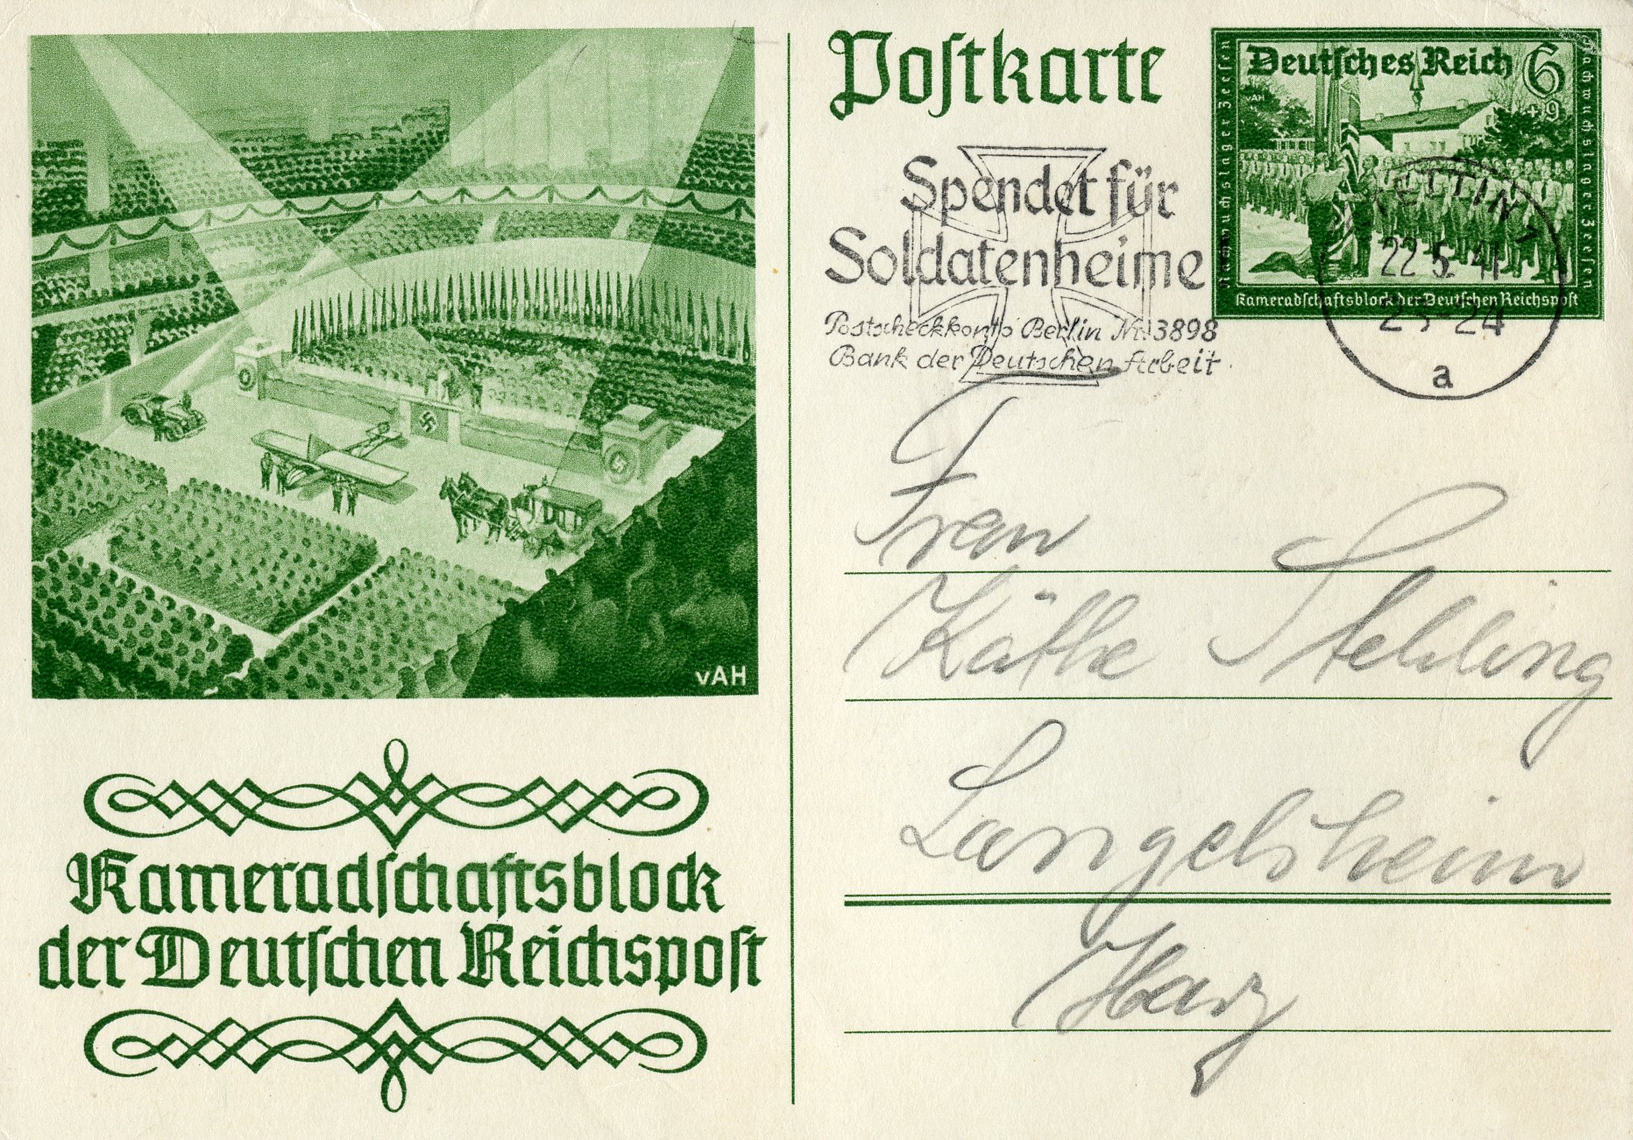 Postkarte
Deutsches Reich 6
+9
vAH
Nachwuchslager Zeesen
Nachwuchslager Zeesen
Kameradschaftsblock der Deutschen Reichspost
Spendet für
Soldatenheime
Postscheckkonto Berlin Nr. 3898
Bank der Deutschen Arbeit
22.5.41
23-24
a
Frau
Käthe Stehling
Langelsheim
Harz
vAH
Kameradschaftsblock
der Deutschen Reichspost